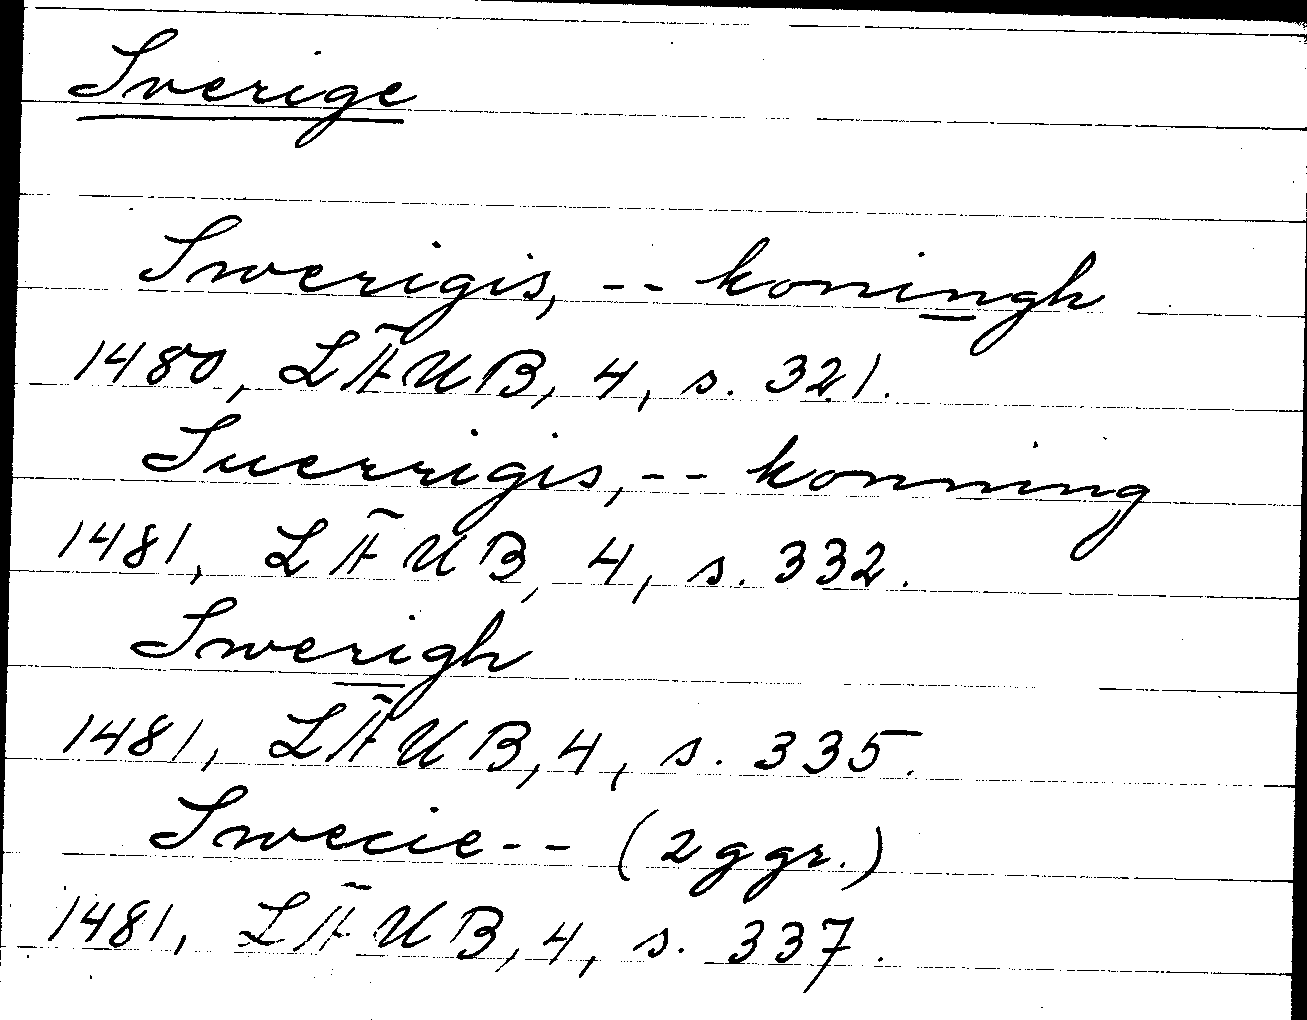 Sverige
Swerigis, -- koningh
1480, LÄUB, 4, s. 321.
Suerrigis, -- konning
1481, LÄUB, 4, s. 332.
Swerigh
1481, LÄUB, 4, s. 335.
Swecie -- (2 ggr.)
1481, LÄUB, 4, s. 337.